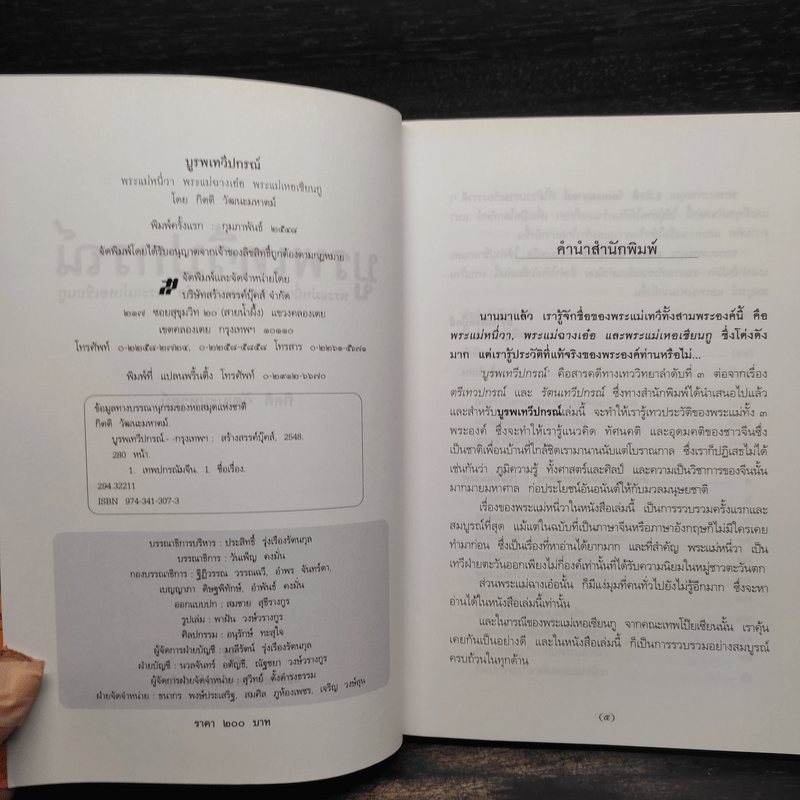 บูรพเทวีปกรณ์
พระแม่หนี่วา พระแม่ฉางเอ๋อ พระแม่เหอเซียนกู
โดย กิตติ วัฒนะมหาตม์
พิมพ์ครั้งแรก : กุมภาพันธ์ ๒๕๔๘
จัดพิมพ์โดยได้รับอนุญาตจากเจ้าของลิขสิทธิ์ถูกต้องตามกฎหมาย
จัดพิมพ์และจัดจำหน่ายโดย
บริษัทสร้างสรรค์บุ๊คส์ จำกัด
๒๑๗ ซอยสุขุมวิท ๒๐ (สายน้ำผึ้ง) แขวงคลองเตย
เขตคลองเตย กรุงเทพฯ ๑๐๑๑๐
โทรศัพท์ ๐-๒๒๕๘-๒๗๒๔, ๐-๒๒๕๘-๕๘๕๘ โทรสาร ๐-๒๒๖๑-๕๗๑
พิมพ์ที่ แปลนพริ้นติ้ง โทรศัพท์ ๐-๒๙๑๒-๖๖๗๐
ข้อมูลทางบรรณานุกรมของหอสมุดแห่งชาติ
กิตติ วัฒนะมหาตม์.
บูรพเทวีปกรณ์.- -กรุงเทพฯ : สร้างสรรค์บุ๊คส์, 2548.
280 หน้า.
1. เทพปกรณัมจีน. I. ชื่อเรื่อง.
294.32211
ISBN 974-341-307-3
บรรณาธิการบริหาร : ประสิทธิ์ รุ่งเรืองรัตนกุล
บรรณาธิการ : วันเพ็ญ คงมั่น
กองบรรณาธิการ : ฐิฏิวรรณ วรรณฉวี, อำพร จันทร์ดา,
เบญญาภา ดิษฐพิทักษ์, อำพันธ์ คงมั่น
ออกแบบปก : สมชาย สุธีรางกูร
รูปเล่ม : พาฝัน วงษ์วรางกูร
ศิลปกรรม : อนุรักษ์ ทะสุใจ
ผู้จัดการฝ่ายบัญชี : มาลีรัตน์ รุ่งเรืองรัตนกุล
ฝ่ายบัญชี : นวลจันทร์ อตัญธี, ณัฐชยา วงษ์วรางกูร
ผู้จัดการฝ่ายจัดจำหน่าย : สุวิทย์ ตั้งดำรงธรรม
ฝ่ายจัดจำหน่าย : ธนากร พงษ์ประเสริฐ, สมศิล ภูท้องเพชร, เจริญ วงษ์ลุน
ราคา ๒๐๐ บาท
คำนำสำนักพิมพ์
นานมาแล้ว เรารู้จักชื่อของพระแม่เทวีทั้งสามพระองค์นี้ คือ
พระแม่หนี่วา, พระแม่ฉางเอ๋อ และพระแม่เหอเซียนกู ซึ่งโด่งดัง
มาก แต่เรารู้ประวัติที่แท้จริงของพระองค์ท่านหรือไม่...
'บูรพเทวีปกรณ์' คือสารคดีทางเทววิทยาลำดับที่ ๓ ต่อจากเรื่อง
ตรีเทวปกรณ์ และ รัตนเทวีปกรณ์ ซึ่งทางสำนักพิมพ์ได้นำเสนอไปแล้ว
และสำหรับบูรพเทวีปกรณ์เล่มนี้ จะทำให้เรารู้เทวประวัติของพระแม่ทั้ง ๓
พระองค์ ซึ่งจะทำให้เรารู้แนวคิด ทัศนคติ และอุดมคติของชาวจีนซึ่ง
เป็นชาติเพื่อนบ้านที่ใกล้ชิดเรามานานนับแต่โบราณกาล ซึ่งเราก็ปฏิเสธไม่ได้
เช่นกันว่า ภูมิความรู้ ทั้งศาสตร์และศิลป์ และความเป็นวิชาการของจีนนั้น
มากมายมหาศาล ก่อประโยชน์อันอนันต์ให้กับมวลมนุษยชาติ
เรื่องของพระแม่หนี่วาในหนังสือเล่มนี้ เป็นการรวบรวมครั้งแรกและ
สมบูรณ์ที่สุด แม้แต่ในฉบับที่เป็นภาษาจีนหรือภาษาอังกฤษก็ไม่มีใครเคย
ทำมาก่อน ซึ่งเป็นเรื่องที่หาอ่านได้ยากมาก และที่สำคัญ พระแม่หนี่วา เป็น
เทวีฝ่ายตะวันออกเพียงไม่กี่องค์เท่านั้นที่ได้รับความนิยมในหมู่ชาวตะวันตก
ส่วนพระแม่ฉางเอ๋อนั้น ก็มีแง่มุมที่คนทั่วไปยังไม่รู้อีกมาก ซึ่งจะหา
อ่านได้ในหนังสือเล่มนี้เท่านั้น
และในกรณีของพระแม่เหอเซียนกู จากคณะเทพโป๊ยเซียนนั้น เราคุ้น
เคยกันเป็นอย่างดี และในหนังสือเล่มนี้ ก็เป็นการรวบรวมอย่างสมบูรณ์
ครบถ้วนในทุกด้าน
(๕)